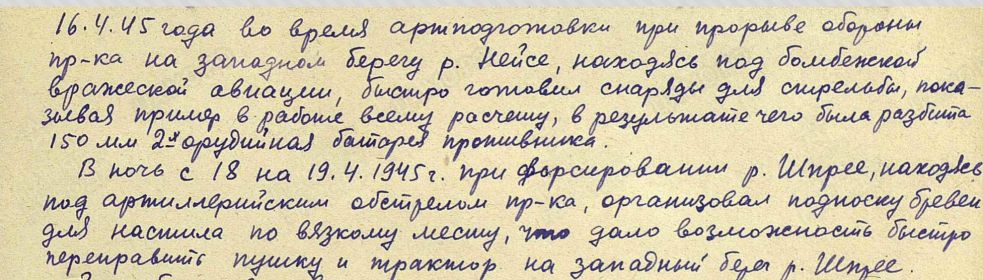 16.4.45 года во время артподготовки при прорыве обороны
пр-ка на западном берегу р. Нейсе, находясь под бомбежкой
вражеской авиации, быстро готовил снаряды для стрельбы, пока-
зывая пример в работе всему расчету, в результате чего была разбита
150 мм 2х орудийная батарея противника.
В ночь с 18 на 19.4.1945 г. при форсировании р. Шпрее, находясь
под артиллерийским обстрелом пр-ка, организовал подноску бревен
для настила по вязкому месту, что дало возможность быстро
переправить пушку и трактор на западный берег р. Шпрее.